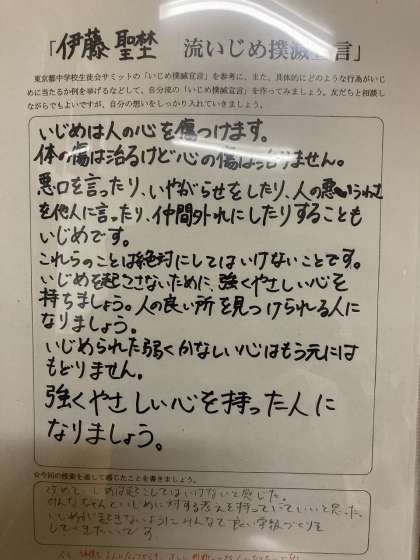 「伊藤 聖埜 流いじめ撲滅宣言」
東京都中学校生徒会サミットの「いじめ撲滅宣言」を参考に、また、具体的にどのような行為がいじ
めに当たるか例を挙げるなどして、自分流の「いじめ撲滅宣言」を作ってみましょう。友だちと相談し
ながらでもよいですが、自分の想いをしっかり入れていきましょう。
いじめは人の心を傷つけます。
体の傷は治るけど心の傷は治りません。
悪口を言ったり、いやがらせをしたり、人の悪いうわさ
を他人に言ったり、仲間外れにしたりすることも
いじめです。
これらのことは絶対にしてはいけないことです。
いじめを起こさないために、強くやさしい心を
持ちましょう。人の良い所を見つけられる人に
なりましょう。
いじめられた弱くかなしい心はもう元には
もどりません。
強くやさしい心を持った人に
なりましょう。
☆今回の授業を通して感じたことを書きましょう。
改めていじめは起こしてはいけないと感じた。
みんなちゃんといじめに対する考えを持っていていいと思った。
いじめが起きないようにみんなで良い学校づくりを
していきたいです。